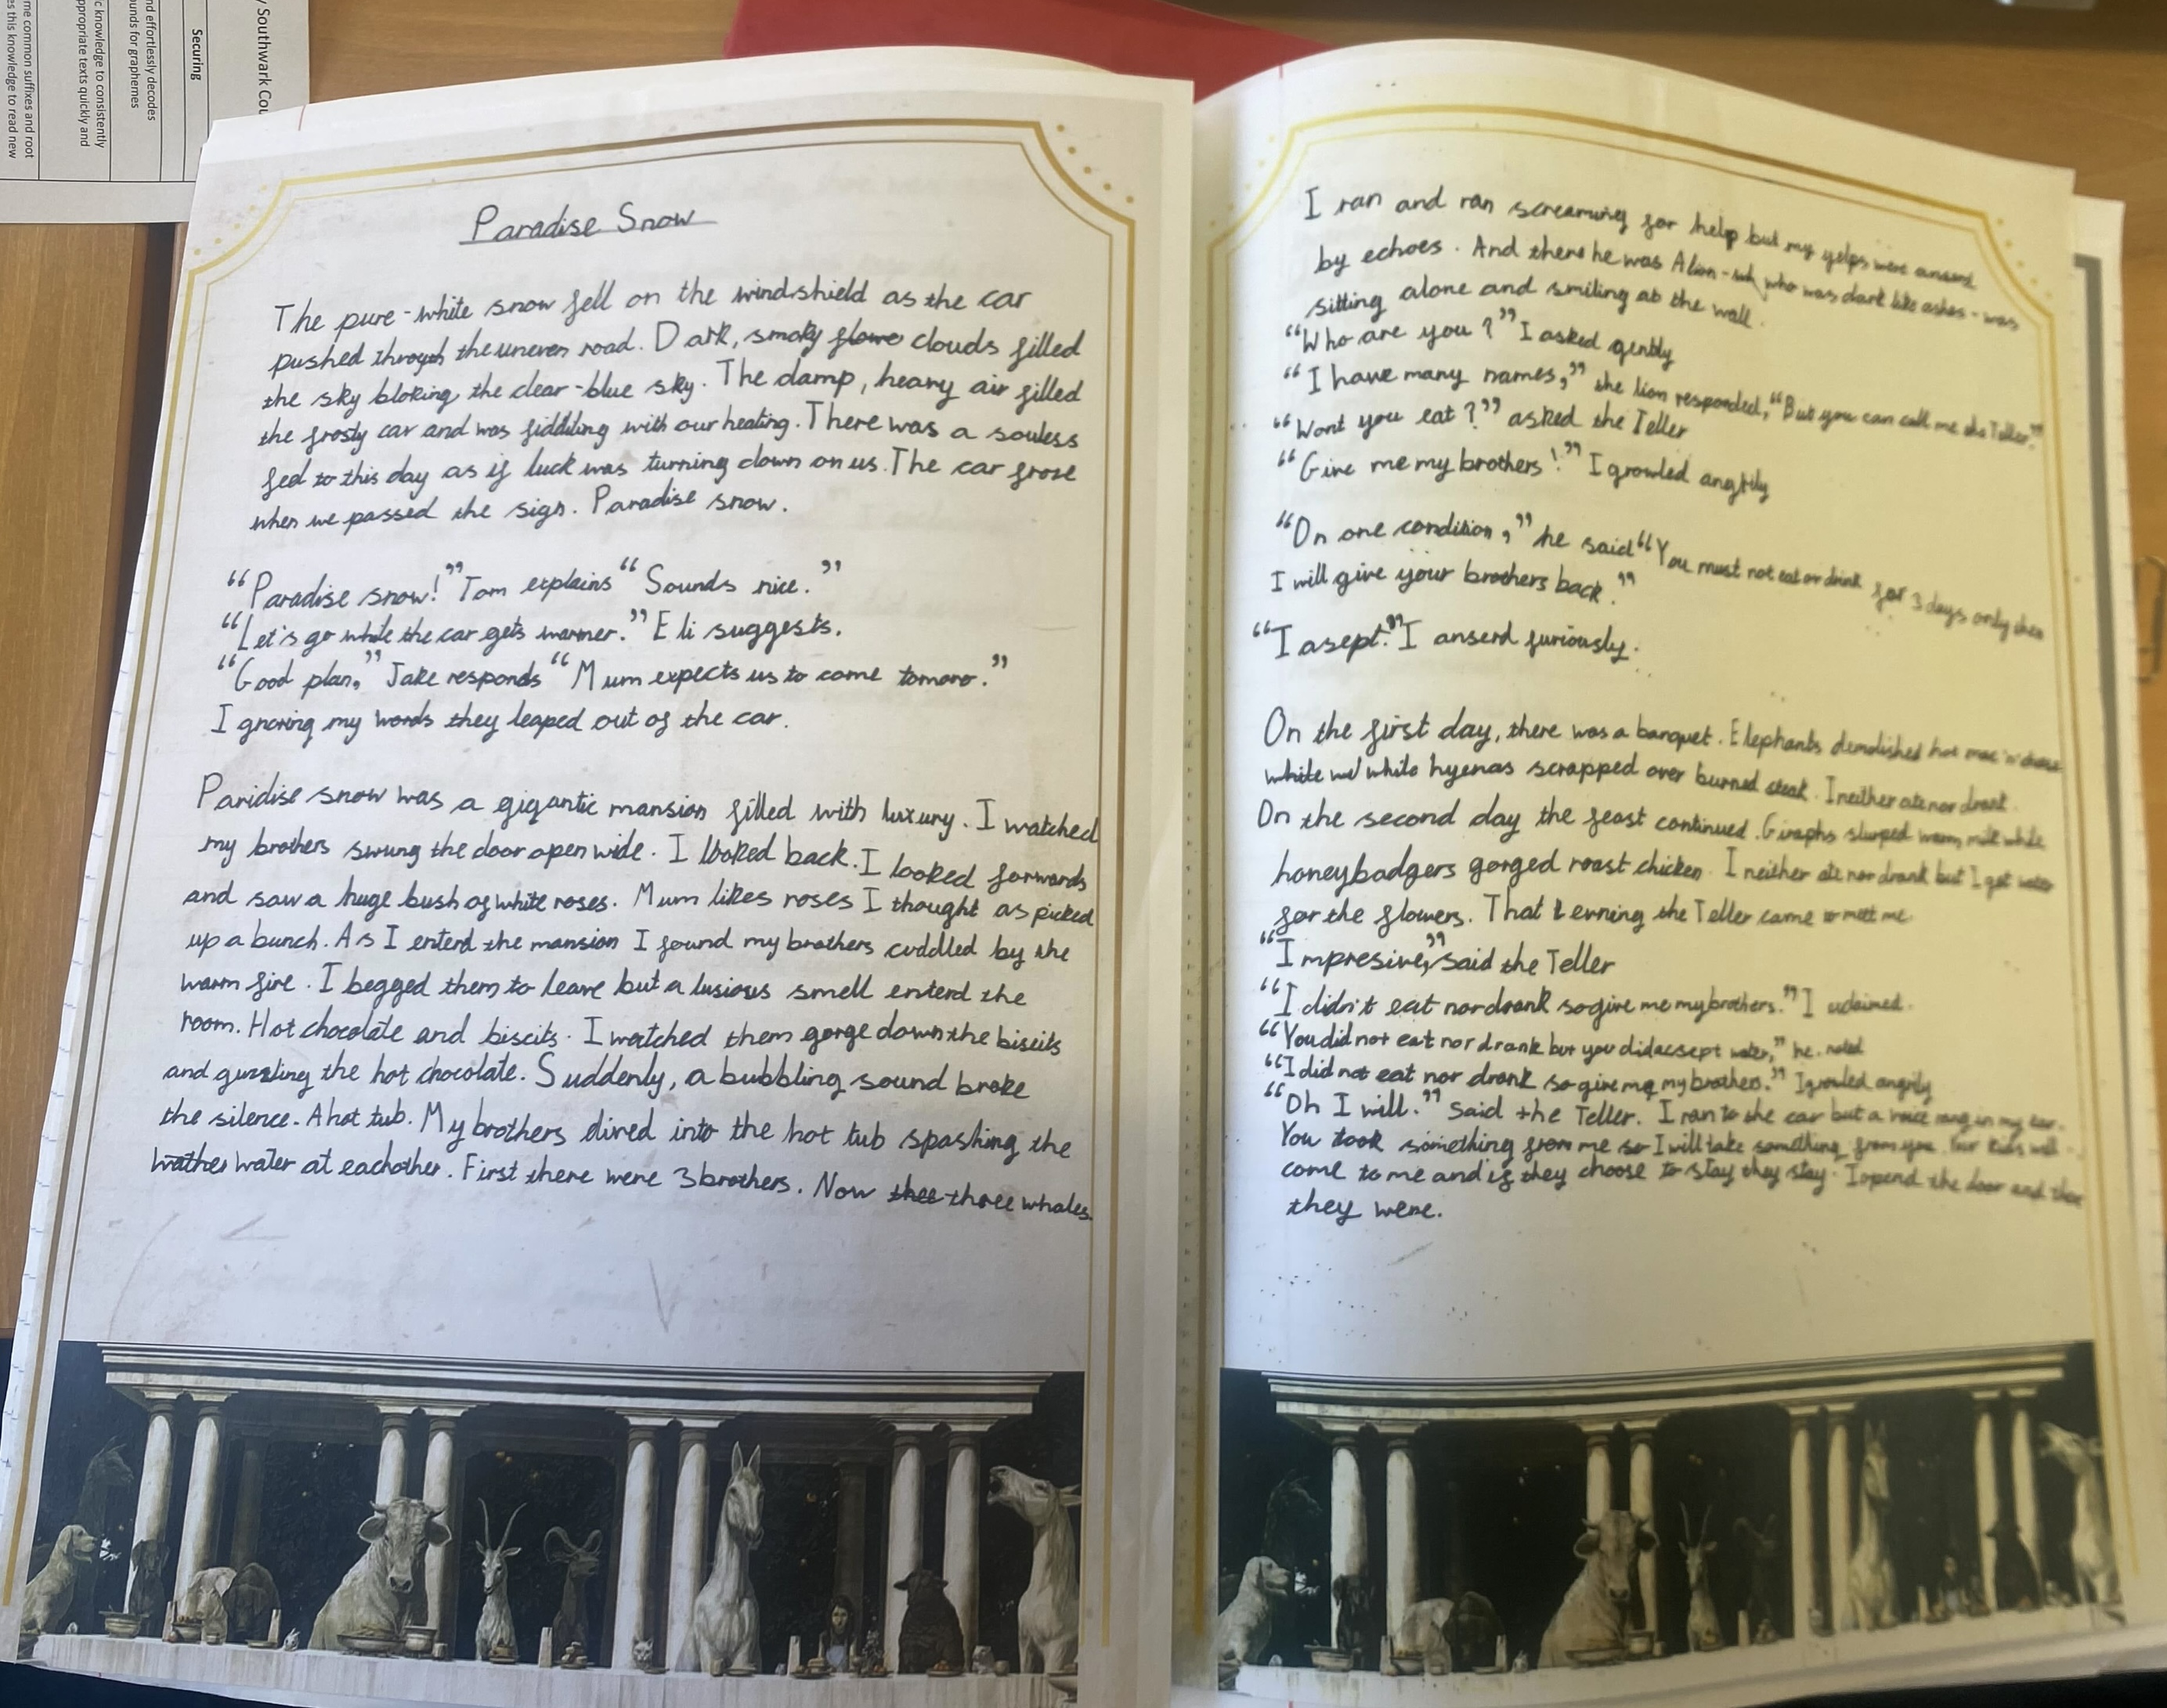 y Southwark Cou
Securing
nd effortlessly decodes
unds for graphemes
c knowledge to consistently
ppropriate texts quickly and
me common suffixes and root
es this knowledge to read new
Paradise Snow
The pure-white snow fell on the windshield as the car
pushed through the uneven road. Dark, smoky clouds filled
the sky bloking the clear-blue sky. The damp, heavy air filled
the frosty car and was fiddiling with our heating. There was a souless
feel to this day as if luck was turning down on us. The car frose
when we passed the sign. Paradise snow.
“Paradise snow!” Tom explains “Sounds nice.”
“Let's go while the car gets warmer.” Eli suggests.
“Good plan,” Jake responds “Mum expects us to come tomoro.”
Ignoring my words they leaped out of the car.
Paridise snow was a gigantic mansion filled with luxury. I watched
my brothers swung the door open wide. I looked back. I looked forwards
and saw a huge bush of white roses. Mum likes roses I thought as picked
up a bunch. As I enterd the mansion I found my brothers cuddled by the
warm fire. I begged them to leave but a lusious smell enterd the
room. Hot chocolate and biscits. I watched them gorge down the biscits
and guzzling the hot chocolate. Suddenly, a bubbling sound broke
the silence. A hot tub. My brothers dived into the hot tub spashing the
water at eachother. First there were 3 brothers. Now three whales.
I ran and ran screaming for help but my yelps were
by echoes. And there he was A lion - who was dark like ashes - was
sitting alone and smiling at the wall.
“Who are you?” I asked gently
“I have many names,” the lion responded, “But you can call me the Teller.”
“Wont you eat?” asked the Teller
“Give me my brothers!” I growled angrily
“On one condition,” he said “You must not eat or drink for 3 days only then
I will give your brothers back.”
“I asept.” I anserd furiously.
On the first day, there was a banquet. Elephants demolished hot mac 'n' cheese
while hyenas scrapped over burned steak. I neither ate nor drank.
On the second day the feast continued. Giraphs slurped warm milk while
honeybadgers gorged roast chicken. I neither ate nor drank but I got water
for the flowers. That evning the Teller came to meet me.
“Impresive,” said the Teller
“I didn't eat nor drank so give me my brothers.” I exclaimed.
“You did not eat nor drank but you did acsept water,” he noted
“I did not eat nor drank so give me my brothers.” I growled angrily
“Oh I will.” said the Teller. I ran to the car but a voice rang in my ear.
You took something from me so I will take something from you. Your kids will
come to me and if they choose to stay they stay. I opend the door and there
they were.